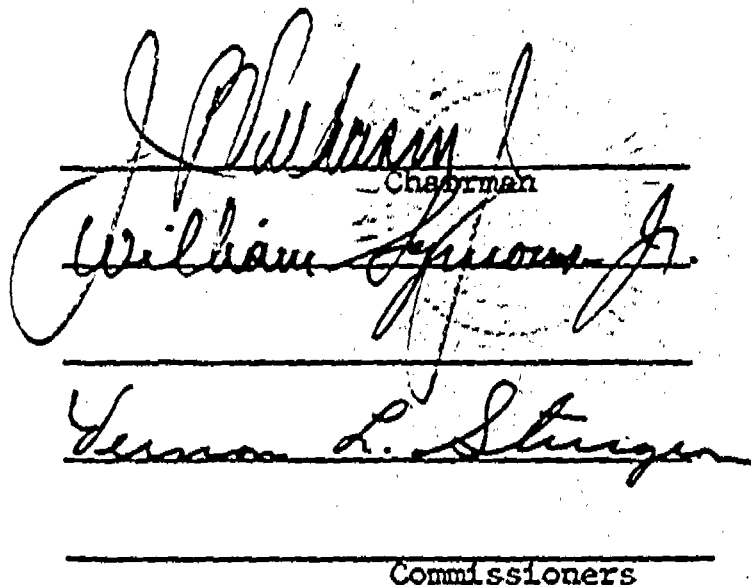 Chairman
William Symons Jr.
Vernon L. Sturgeon
Commissioners